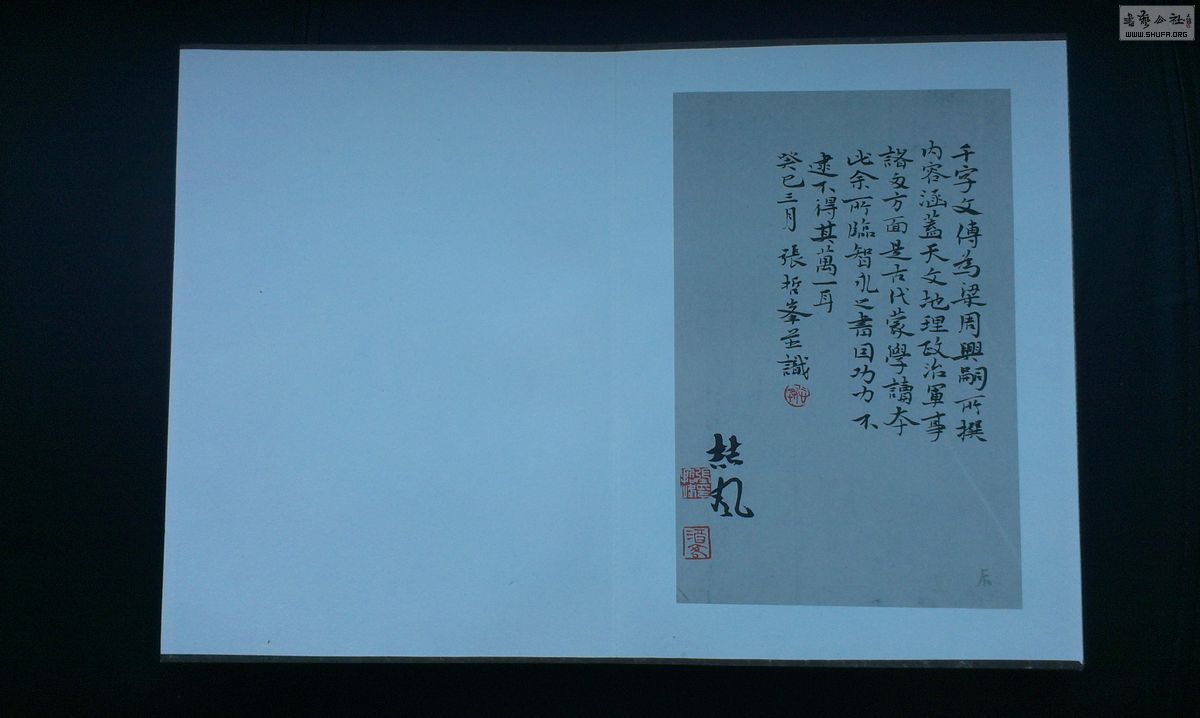 千字文傳為梁周興嗣所撰
内容涵蓋天文地理政治軍事
諸多方面是古代蒙學讀本
此余所臨智永之書因功力不
逮不得其萬一耳
癸巳三月 張哲峯並識
WWW.SHUFA.ORG